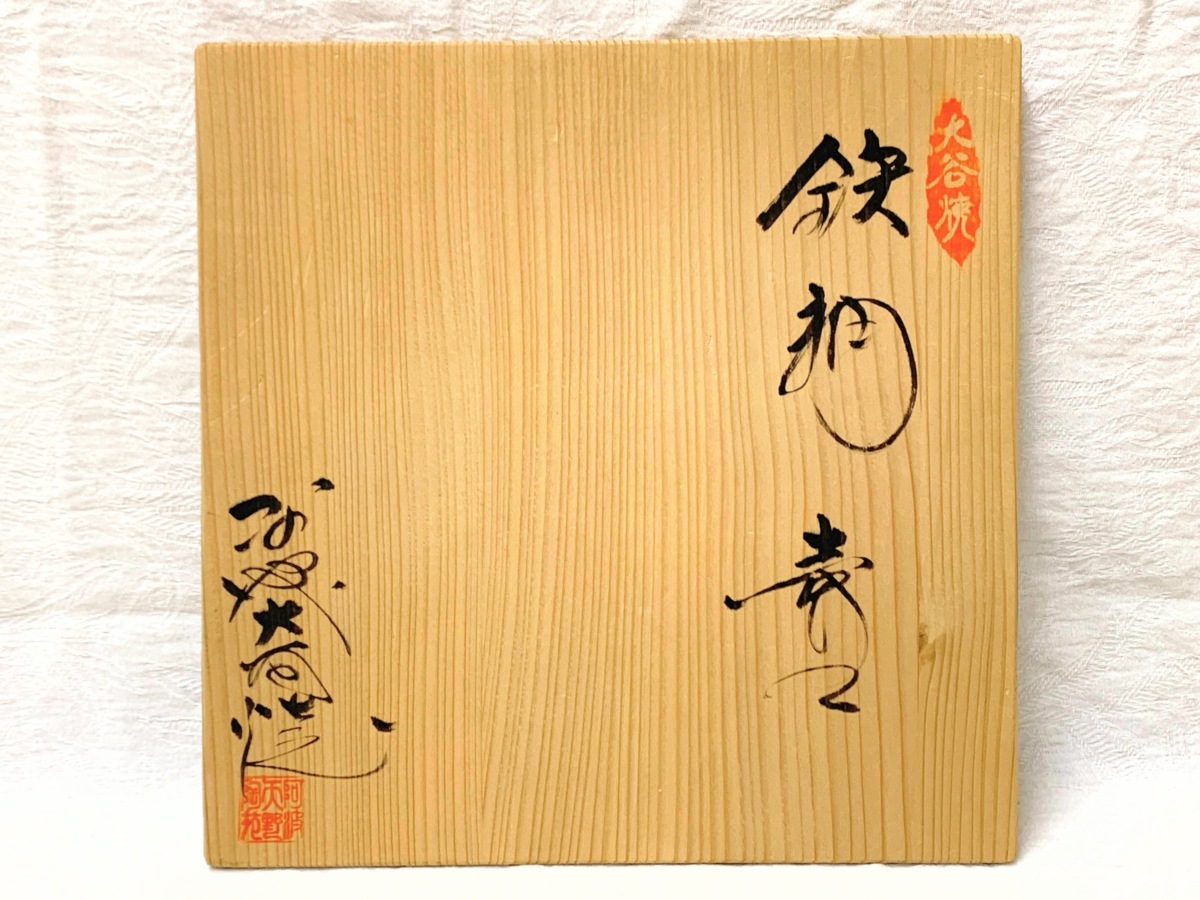 大谷焼
鉄釉
阿波大谷焼
阿波
天野
陶苑